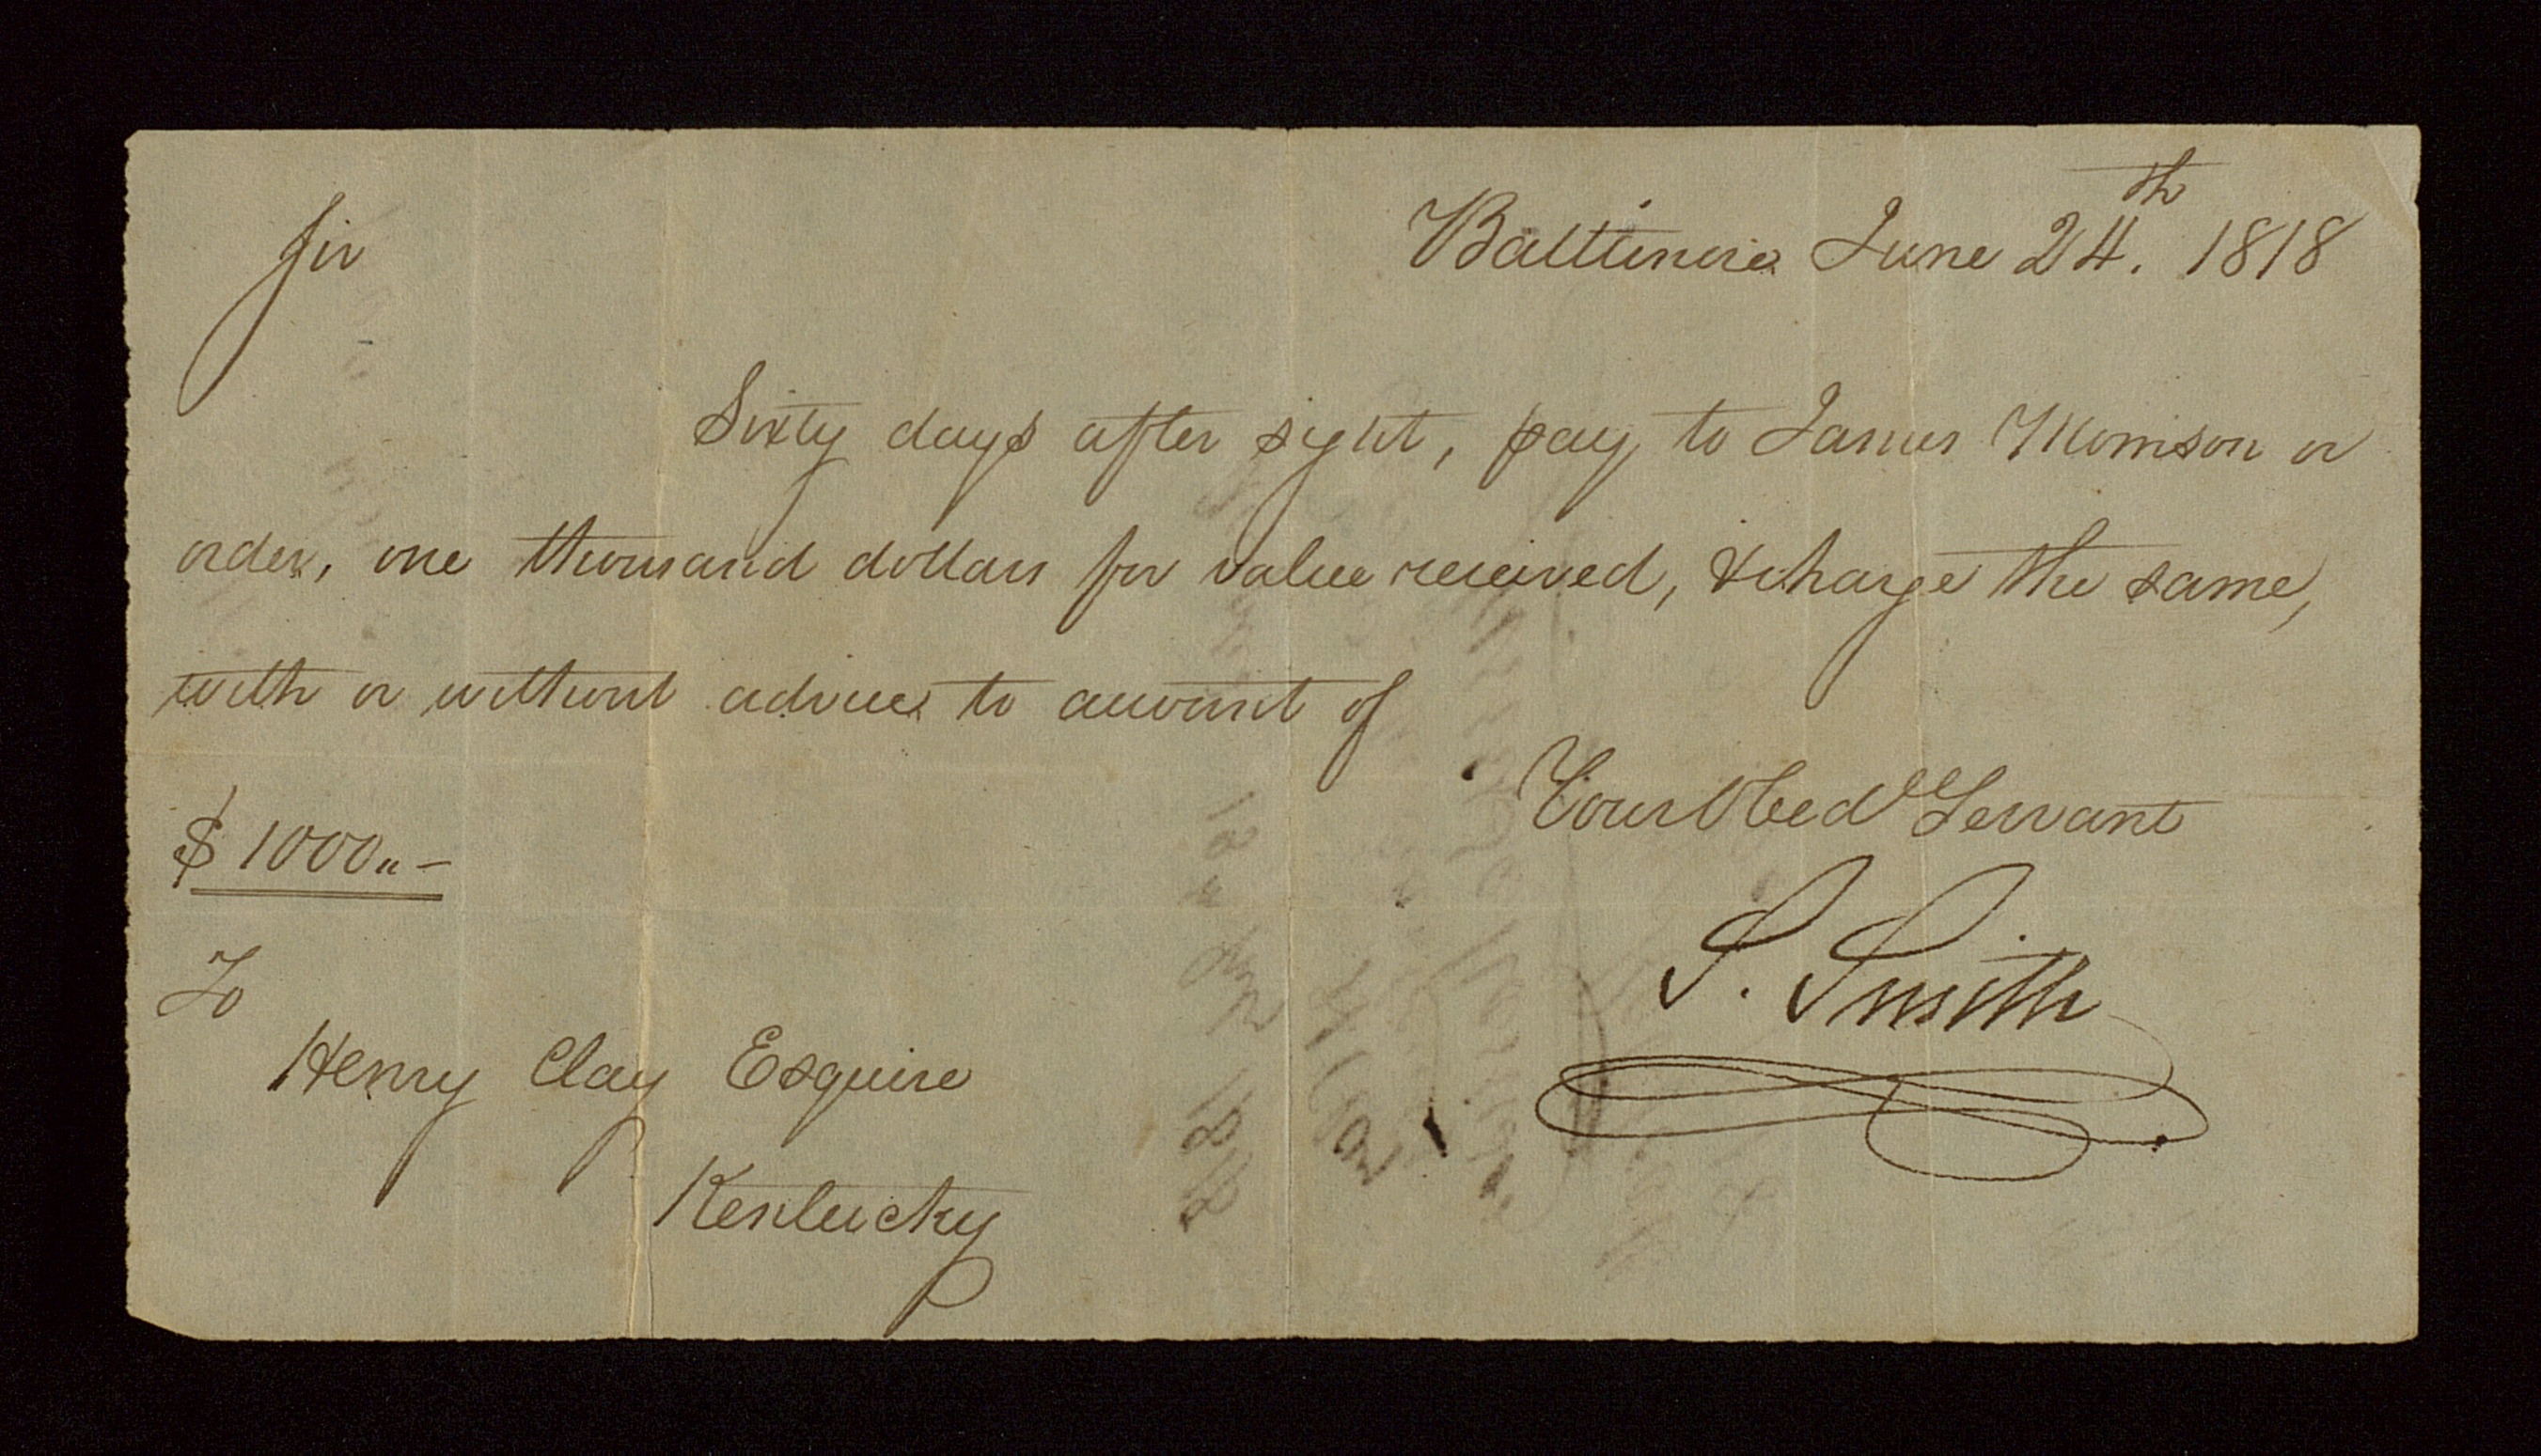 Sir
Baltimore June 24th. 1818
Sixty days after sight, pay to James Morrison or
order, one thousand dollars for value received, & charge the same,
with or without advice to account of
Your Obed Servant
$ 1000"-
S. Smith
To
Henry Clay Esquire
Kentucky